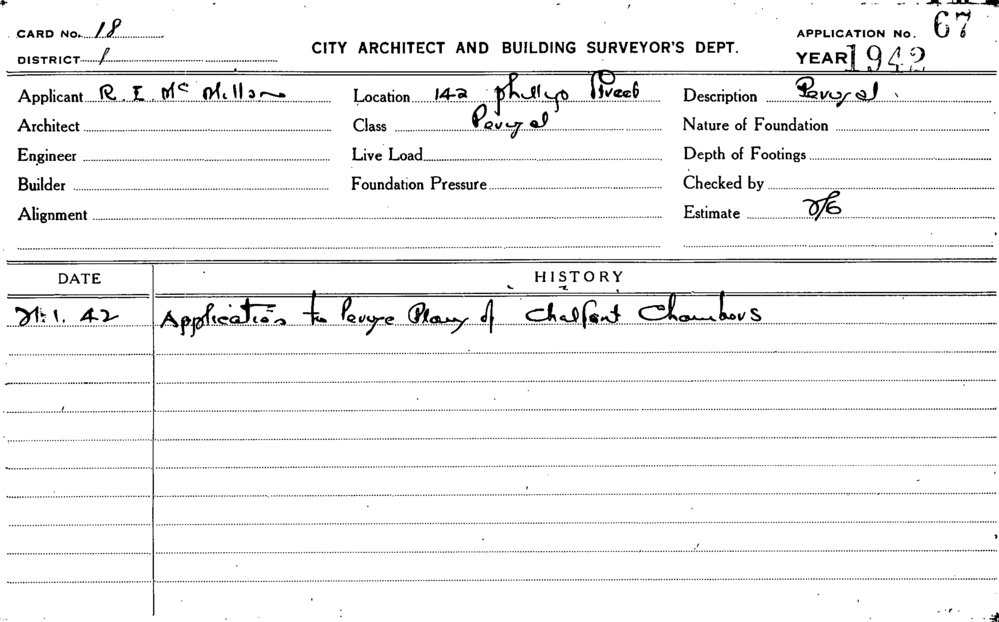 CARD No. 18
APPLICATION No. 67
DISTRICT 1
CITY ARCHITECT AND BUILDING SURVEYOR'S DEPT.
YEAR 1942
Applicant R. E. Mc Millan Location 142 Phillip Street Description Perusal
Architect Class Perusal Nature of Foundation
Engineer Live Load Depth of Footings
Builder Foundation Pressure Checked by
Alignment Estimate 2/6
DATE HISTORY
21.1.42 Application to Peruse Plans of Chalfont Chambers